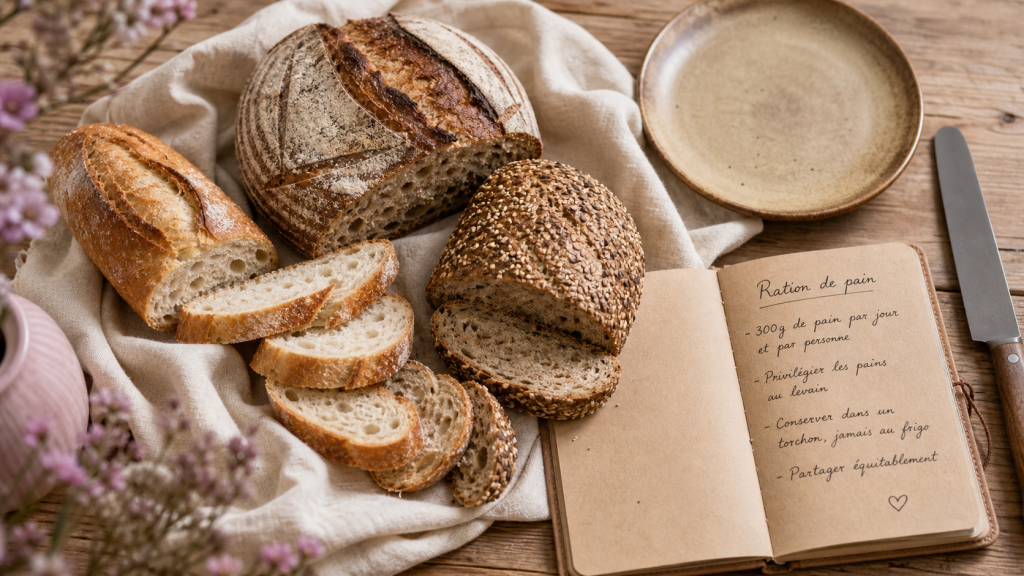 Ration de pain
- 300g de pain par jour
et par personne
- Privilégier les pains
au levain
- Conserver dans un
torchon, jamais au frigo
- Partager équitablement